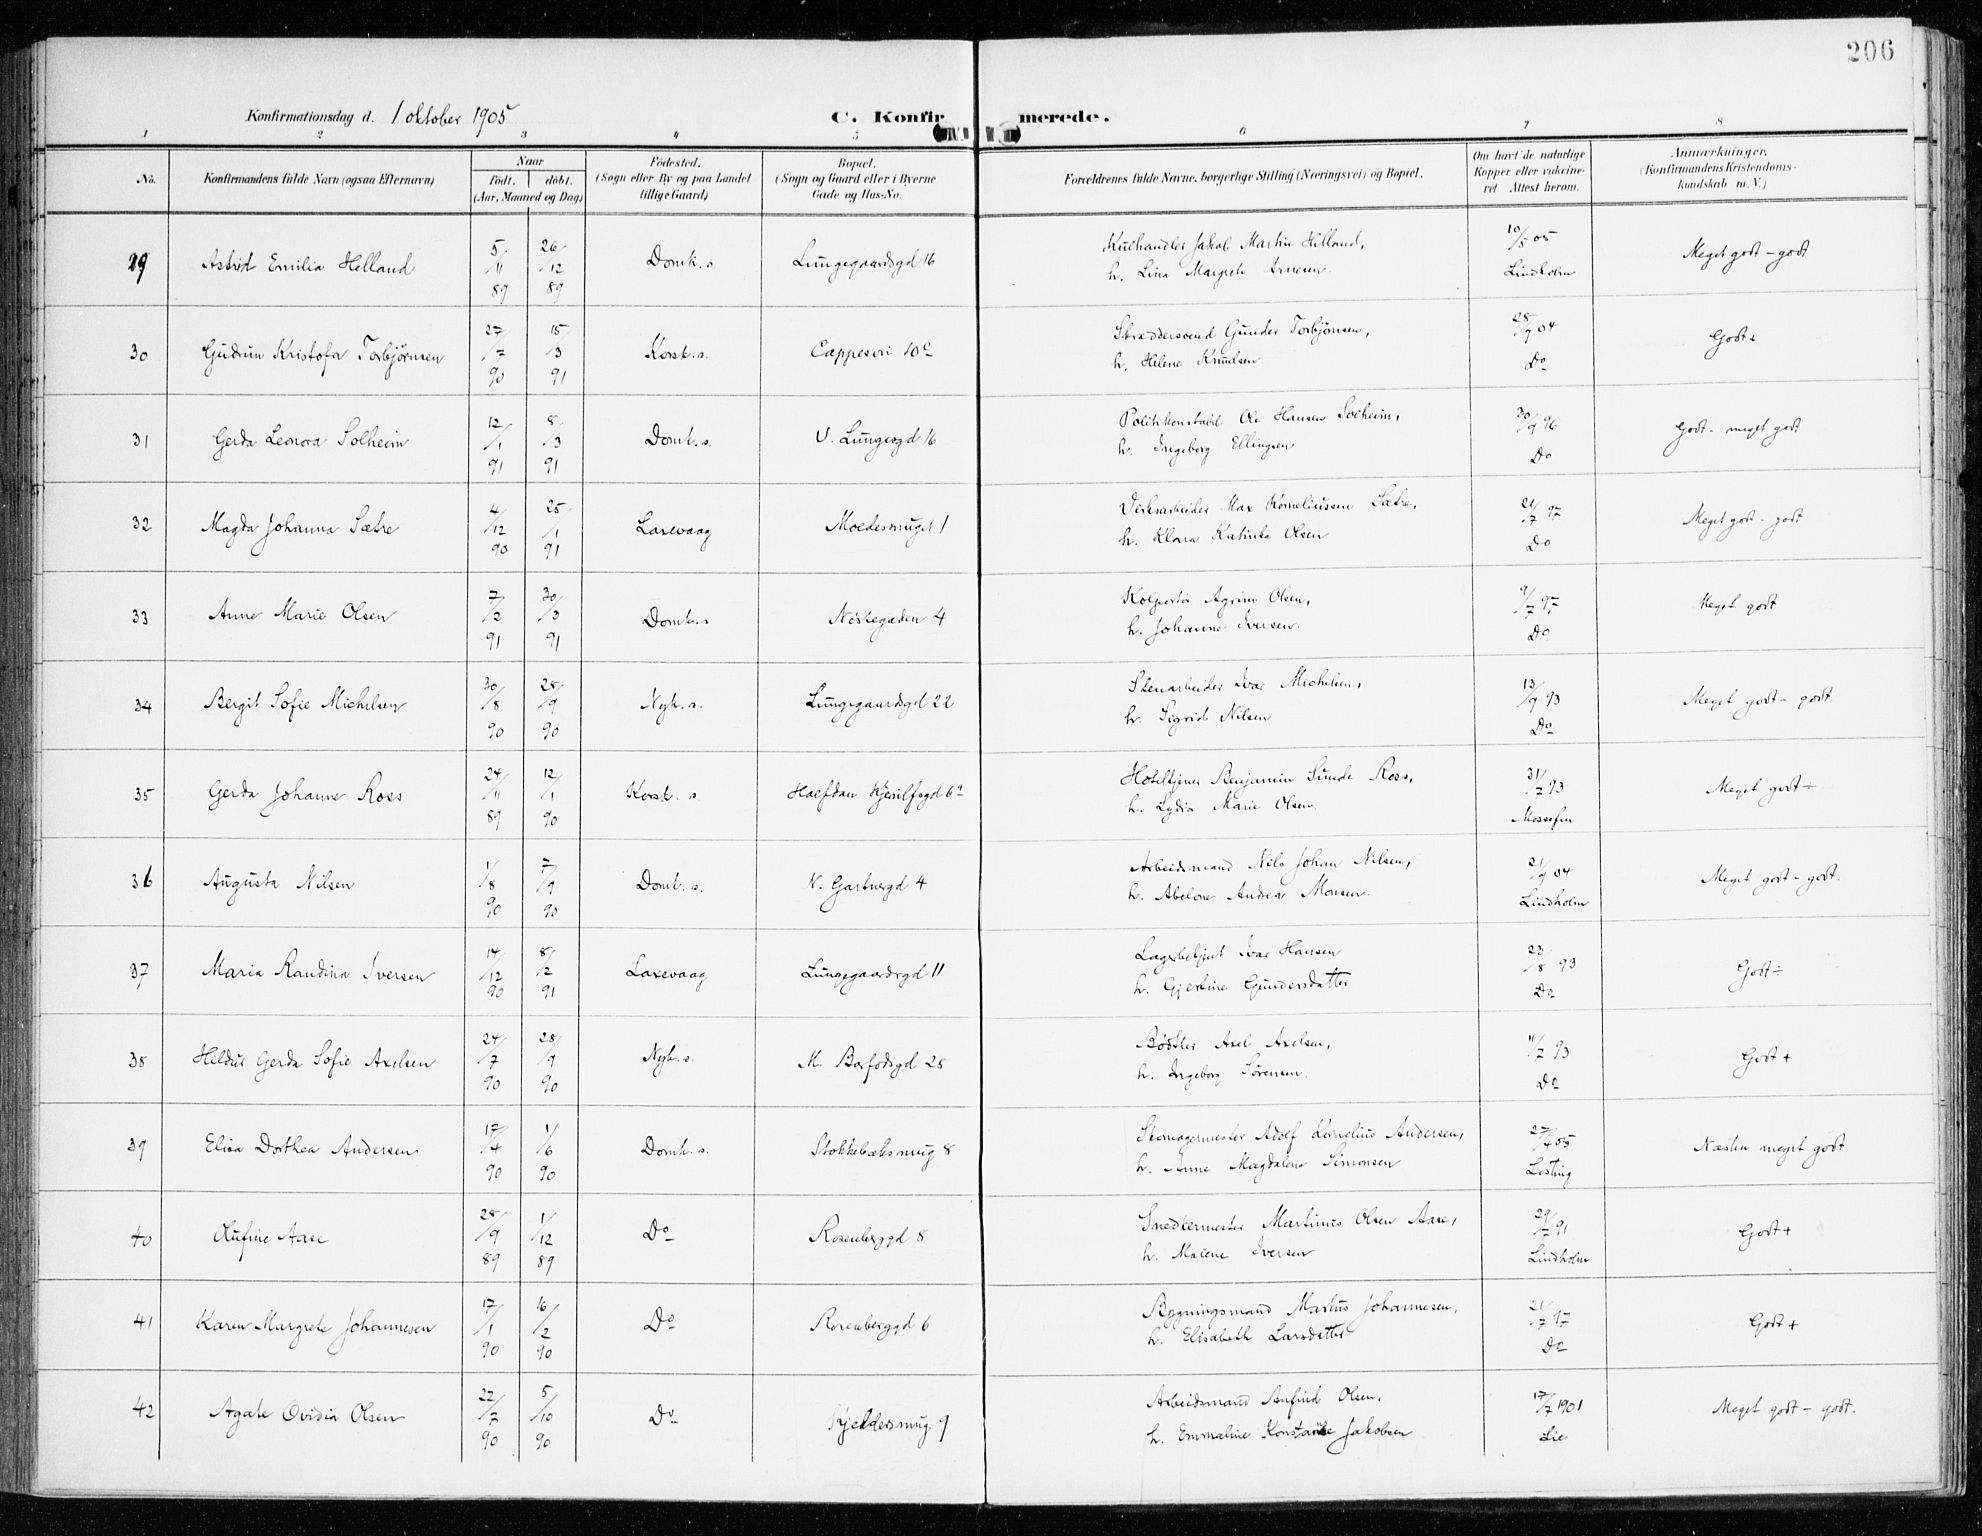 206
Konfirmationsdag d. 1 oktober 1905 C. Konfirmerede.
1 2 3 4 5 6 7 8
No. Konfirmandens fulde Navn (ogsaa Efternavn) Naar født. døbt. (Aar, Maaned og Dag) Fødested. (Sogn eller By og paa Landet tillige Gaard) Bopæl. (Sogn og Gaard eller i Byerne Gade og Hus-No. Forældrenes fulde Navne, borgerlige Stilling (Næringsvei) og Bopæl. Om havt de naturlige Kopper eller vakcineret. Attest herom. Anmærkninger. (Konfirmandens Kristendomskundskab m. V.)
29 Astrid Emilia Helland 5/11 89 26/12 89 Domk. s. Lungegaardsgd 16 Kulhandler Jakob Martin Helland, h. Lina Margrete Arnesen 10/5 05 Lindholm Meget godt - godt
30 Gudrun Kristofa Torbjørnsen 27/7 90 15/3 91 Korsk. s. Cappesvei 10c Skræddersvend Gunder Torbjørnsen, h. Helene Knudsen 28/9 04 Do Godt+
31 Gerda Leonora Solheim 12/1 91 8/3 91 Domk. s. V. Lungegd 16 Politikonstabel Ole Hansen Solheim, h. Ingeborg Ellingsen 30/9 96 Do Godt - meget godt
32 Magda Johanna Sætre 4/12 90 25/1 91 Laxevaag Moldesmuget 1 Verksarbeider Max Korneliussen Sætre, h. Klara Katinka Olsen 21/7 97 Do Meget godt - godt
33 Anne Marie Olsen 7/2 91 30/3 91 Domk. s Nøstegaden 4 Kolportør Agrim Olsen, h. Johanne Iversen. 9/7 97 Do Meget godt
34 Bergit Sofie Michelsen 30/8 90 28/9 90 Nyk. s. Lungegaardsgd 22 Stenarbeider Ivar Michelsen, h. Sigrid Nilsen 13/9 93 Do Meget godt - godt
35 Gerda Johanne Ross 24/11 89 12/1 90 Korsk. s. Halfdan Kjerulfsgd 6a Hoteltjener Benjamin Sunde Ross, h. Lydia Marie Olsen. 31/7 93 Mossefin Meget godt ÷
36 Augusta Nilsen 1/8 90 7/9 90 Domk. s. N. Gartnergd 4 Arbeidsmand Nils Johan Nilsen, h. Abelone Andrea Monsen. 21/9 04 Lindholm Meget godt - godt.
37 Maria Randina Iversen 14/12 90 8/2 91 Laxevaag Lungegaardsgd 11 Lagerbetjent Ivar Hansen h. Gjertine Gundersdatter 23/8 93 Do Godt ÷
38 Hildur Gerda Sofie Axelsen 24/7 90 28/9 90 Nyk. s. M. Barfodsgd 28 Bødker Axel Axelsen, h. Ingeborg Sørensen. 11/7 93 Do Godt +
39 Elisa Dorthea Andersen 17/4 90 1/6 90 Domk. s. Stokkebæksmug 8 Skomagermester Adolf Kornelius Andersen, h. Anne Magdalene Simonsen 27/4 05 Losting Næsten meget godt
40 Rufine Aase 28/9 89 1/12 89 Do Rosenberggd 8 Snedkermester Martinus Olsen Aase, h. Malene Iversen 29/7 91 Lindholm Godt +
41 Karen Margrete Johannesen 17/1 90 16/2 90 Do Rosenberggd 6 Bygningsmand Markus Johannesen, h. Elisabeth Larsdatter 21/7 97 Do Godt +
42 Agate Ovidia Olsen 22/7 90 5/10 90 Do Kjeldersmug. 9 Arbeidsmand Anfind Olsen, h. Emmaline Konstanse Jakobsen 17/7 1901 Lie Meget godt - godt.